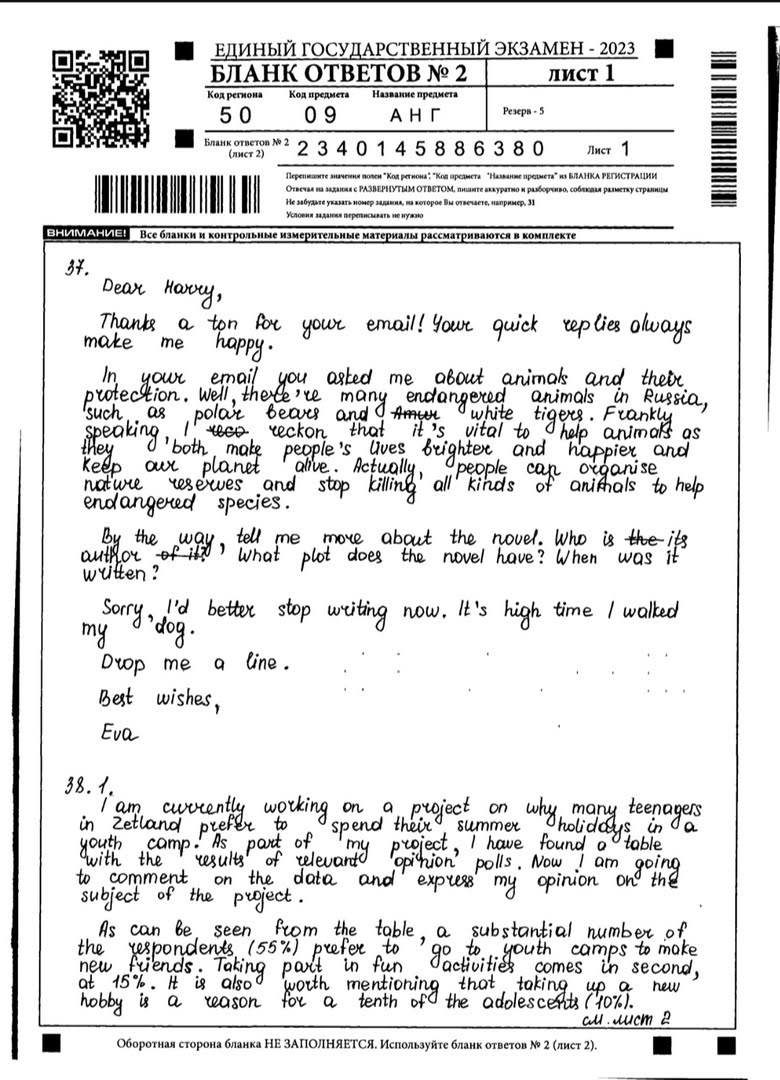 ЕДИНЫЙ ГОСУДАРСТВЕННЫЙ ЭКЗАМЕН - 2023
БЛАНК ОТВЕТОВ № 2 лист 1
Код региона Код предмета Название предмета
50 09 АНГ Резерв - 5
Бланк ответов № 2 (лист 2) 2340145886380 Лист 1
Перепишите значения полей "Код региона", "Код предмета "Название предмета" из БЛАНКА РЕГИСТРАЦИИ
Отвечая на задания с РАЗВЕРНУТЫМ ОТВЕТОМ, пишите аккуратно и разборчиво, соблюдая разметку страницы
Не забудьте указать номер задания, на которое Вы отвечаете, например, 31
Условия задания переписывать не нужно
ВНИМАНИЕ! Все бланки и контрольные измерительные материалы рассматриваются в комплекте
37.
Dear Harry,
Thanks a ton for your email! Your quick replies always
make me happy.
In your email you asked me about animals and their
protection. Well, there're many endangered animals in Russia,
such as polar bears and Amur white tigers. Frankly
speaking, I reco reckon that it's vital to help animals as
they both make people's lives brighter and happier and
keep our planet alive. Actually, people can organise
nature reserves and stop killing all kinds of animals to help
endangered species.
By the way, tell me more about the novel. Who is the its
author of it? What plot does the novel have? When was it
written?
Sorry, I'd better stop writing now. It's high time I walked
my dog.
Drop me a line.
Best wishes,
Eva
38.1.
I am currently working on a project on why many teenagers
in Zetland prefer to spend their summer holidays in a
youth camp. As part of my project, I have found a table
with the results of relevant opinion polls. Now I am going
to comment on the data and express my opinion on the
subject of the project.
As can be seen from the table, a substantial number of
the respondents (55%) prefer to go to youth camps to make
new friends. Taking part in fun activities comes in second,
at 15%. It is also worth mentioning that taking up a new
hobby is a reason for a tenth of the adolescents (10%).
см. лист 2
Оборотная сторона бланка НЕ ЗАПОЛНЯЕТСЯ. Используйте бланк ответов № 2 (лист 2).